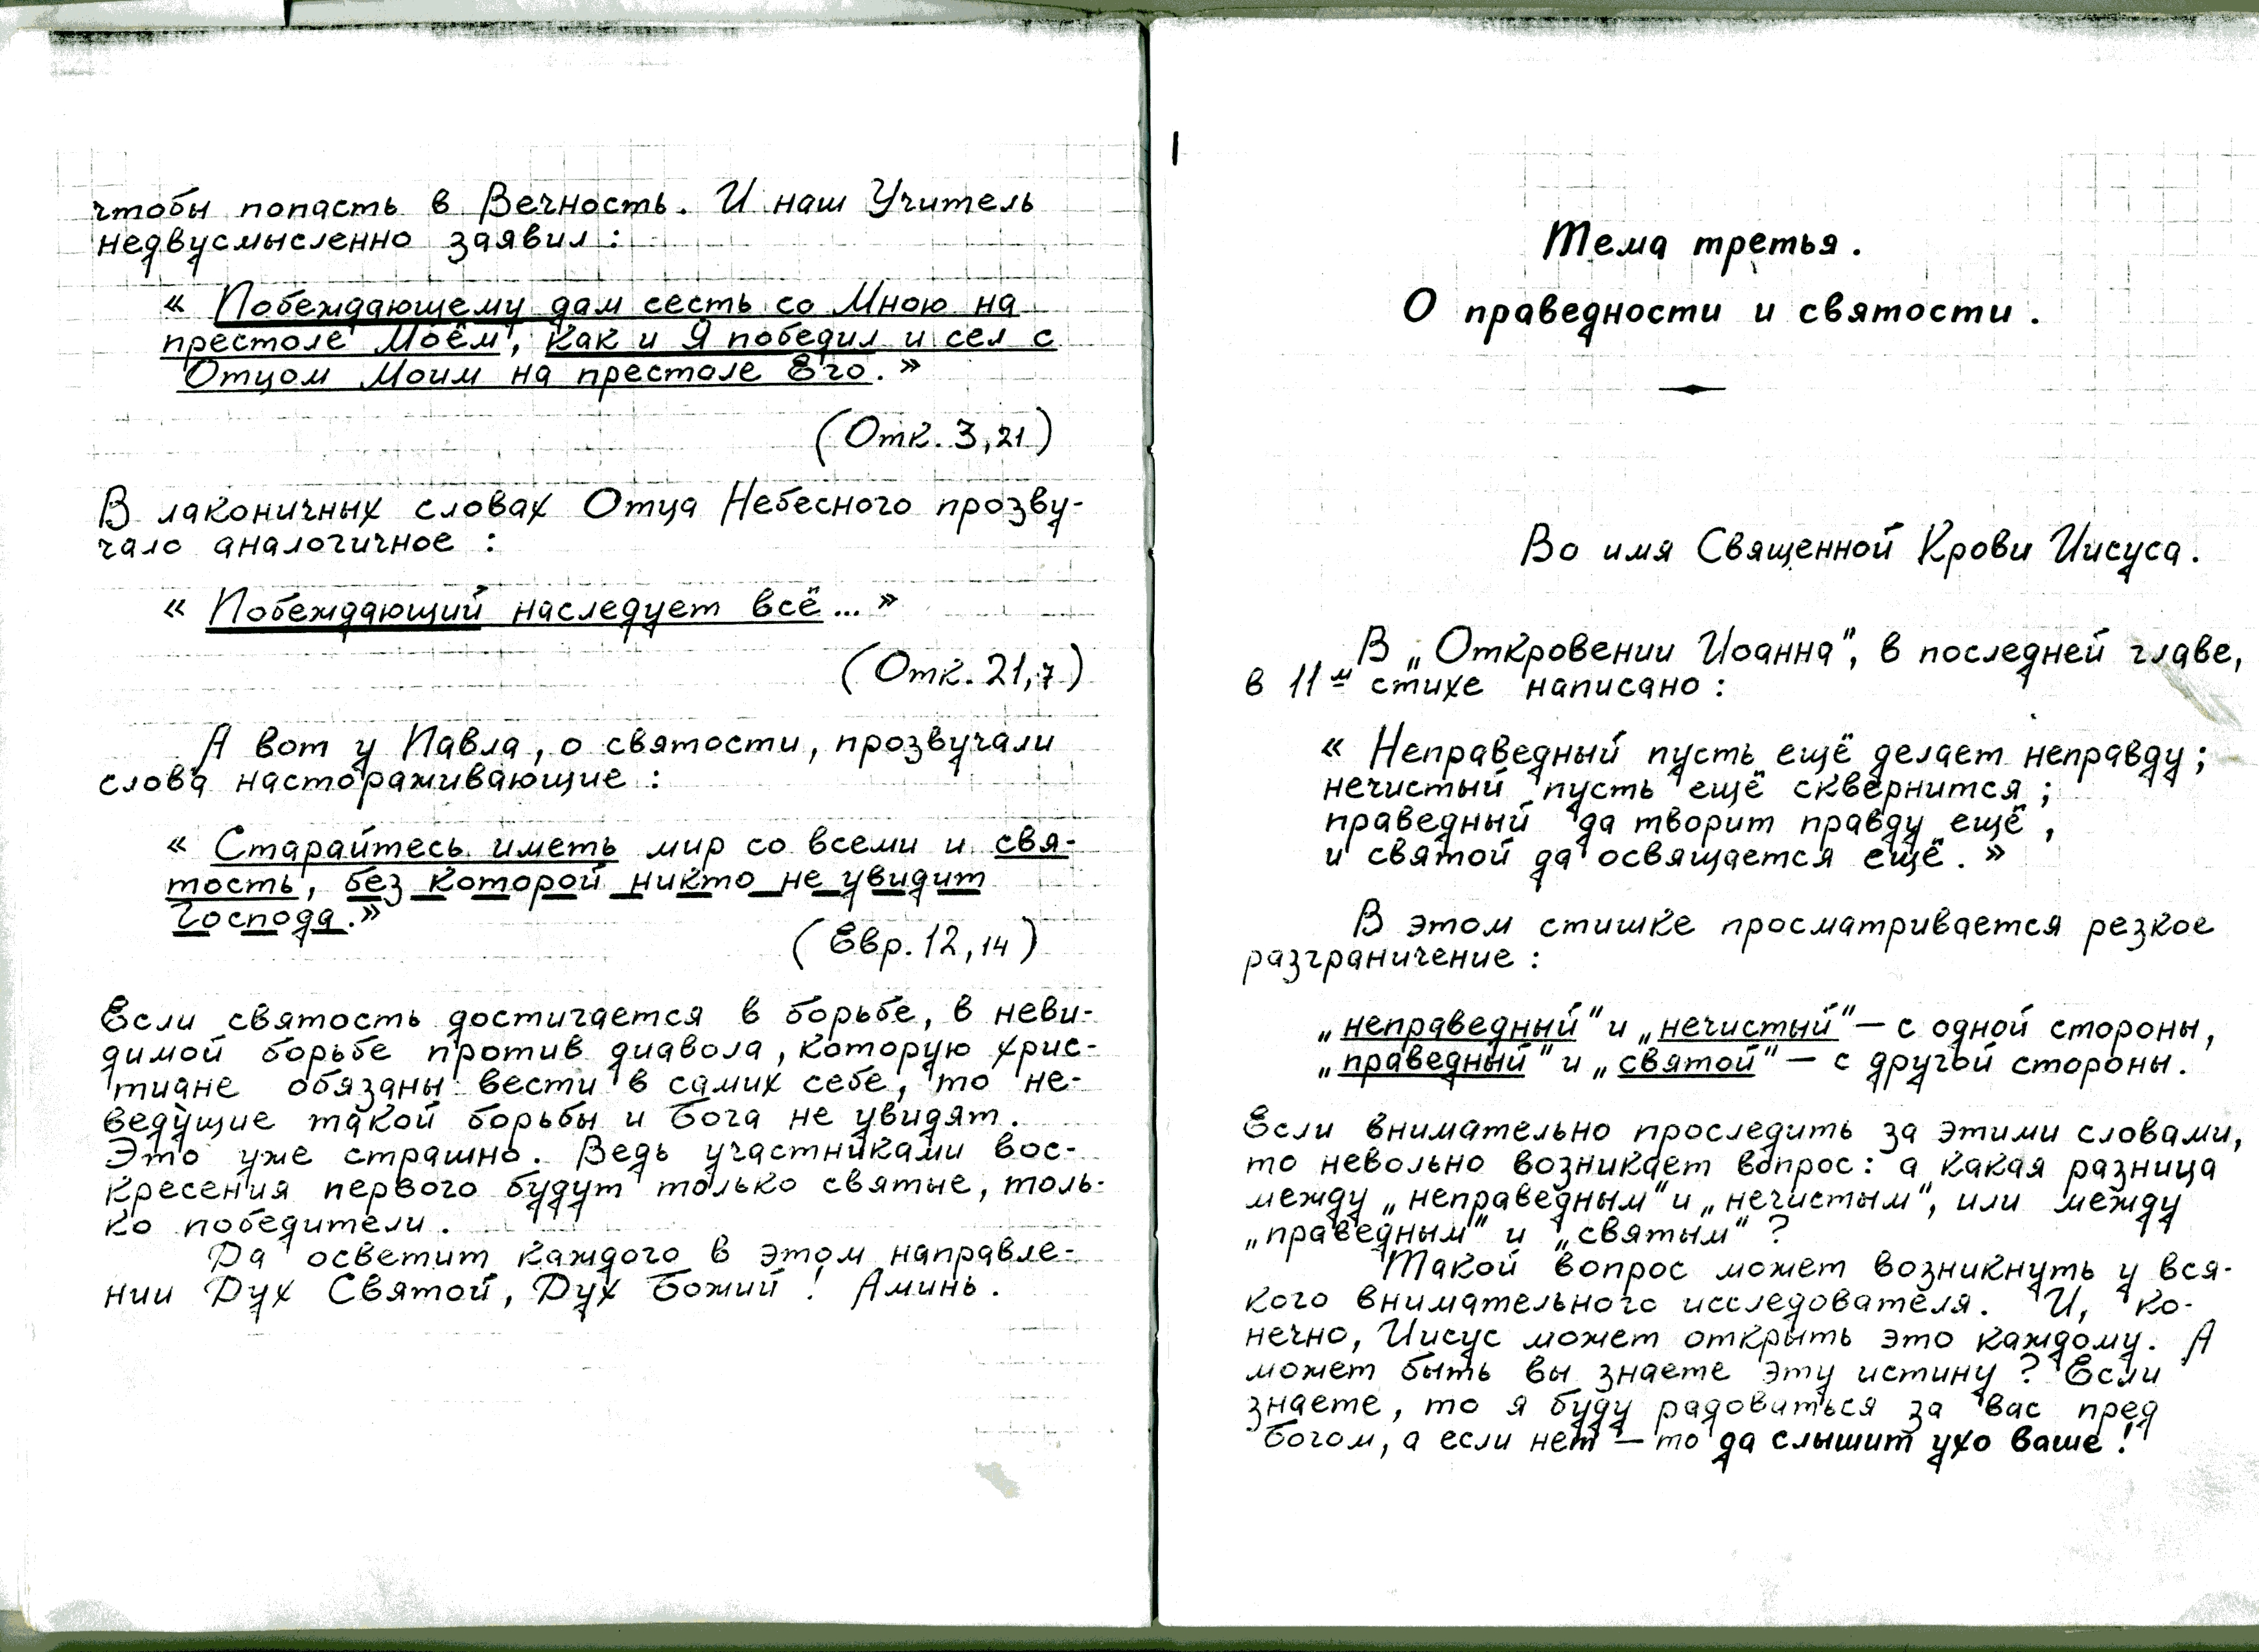 чтобы попасть в Вечность. И наш Учитель
недвусмысленно заявил:
« Побеждающему дам сесть со Мною на
престоле Моём, как и Я победил и сел с
Отцом Моим на престоле Его. »
(Отк. 3,21)
В лаконичных словах Отца Небесного прозву-
чало аналогичное :
« Побеждающий наследует всё... »
(Отк. 21,7)
А вот у Павла, о святости, прозвучали
слова настораживающие :
« Старайтесь иметь мир со всеми и свя-
тость, без которой никто не увидит
Господа.»
(Евр. 12,14)
Если святость достигается в борьбе, в неви-
димой борьбе против диавола, которую хрис-
тиане обязаны вести в самих себе, то не-
ведущие такой борьбы и Бога не увидят.
Это уже страшно. Ведь участниками вос-
кресения первого будут только святые, толь-
ко победители.
Да осветит каждого в этом направле-
нии Дух Святой, Дух Божий ! Аминь.
Тема третья.
О праведности и святости.
Во имя Священной Крови Иисуса.
В „Откровении Иоанна", в последней главе,
в 11м стихе написано :
« Неправедный пусть ещё делает неправду;
нечистый пусть ещё сквернится ;
праведный да творит правду ещё ,
и святой да освящается ещё. »
В этом стишке просматривается резкое
разграничение :
„неправедный" и „нечистый" — с одной стороны,
„праведный" и „святой" — с другой стороны.
Если внимательно проследить за этими словами,
то невольно возникает вопрос: а какая разница
между „неправедным" и „нечистым", или между
„праведным" и „святым" ?
Такой вопрос может возникнуть у вся-
кого внимательного исследователя. И, ко-
нечно, Иисус может открыть это каждому. А
может быть вы знаете эту истину ? Если
знаете, то я буду радоваться за вас пред
Богом, а если нет — то да слышит ухо ваше !